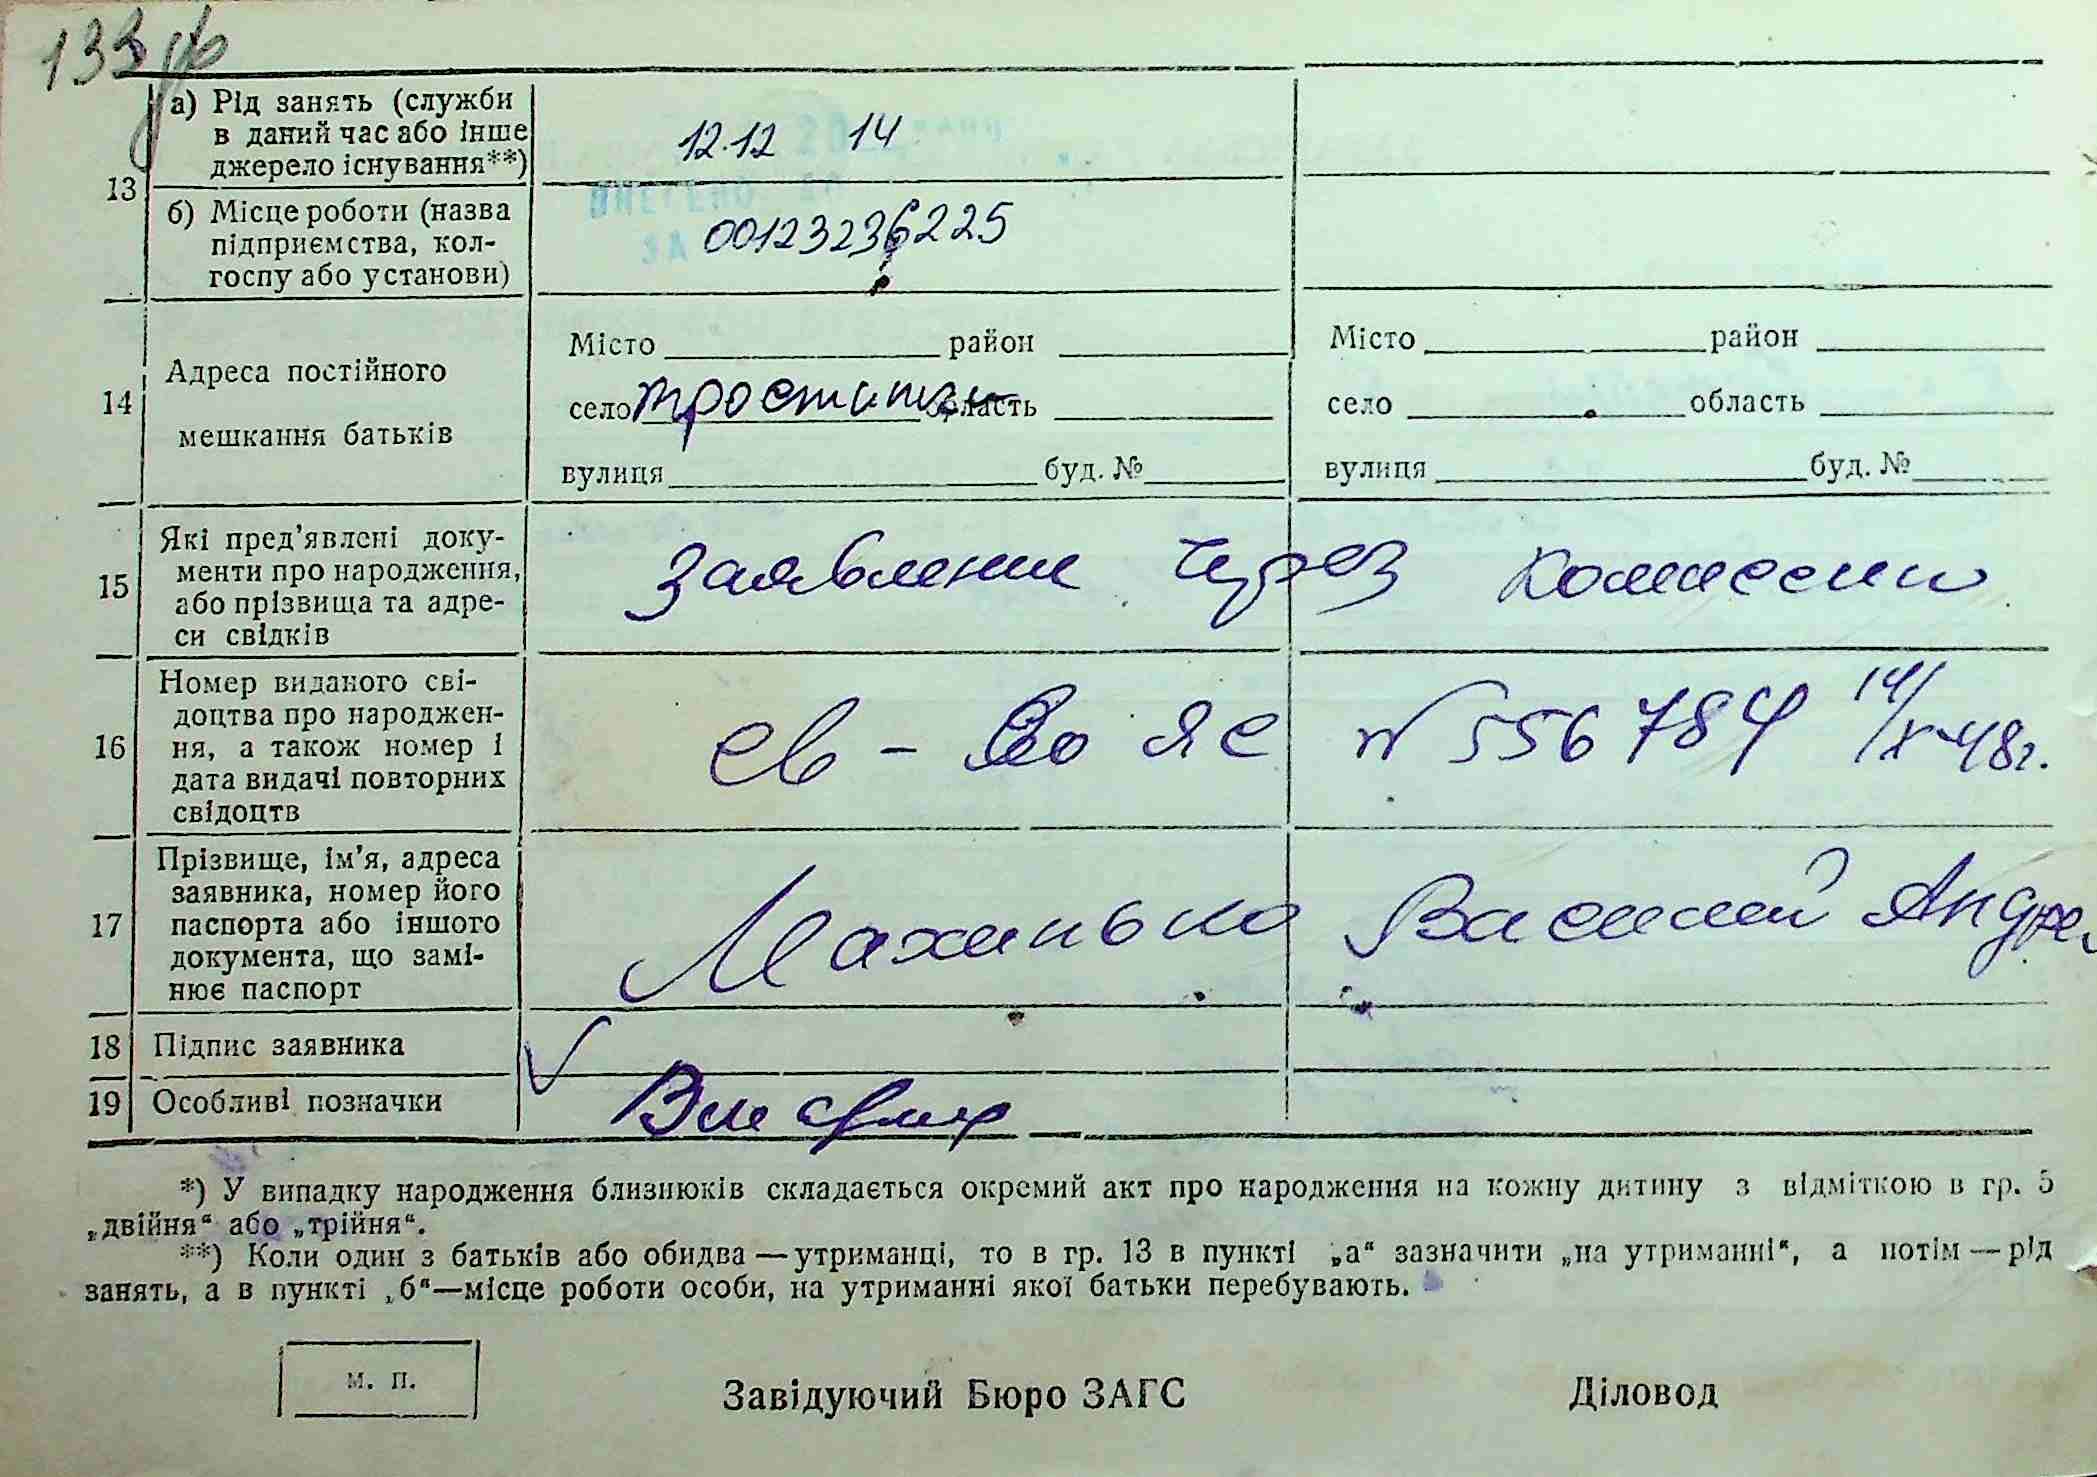 133
13
а) Рід занять (служби
в даний час або інше
джерело існування**)
12.12 14
б) Місце роботи (назва
підприємства, кол-
госпу або установи)
ВНЕСЕНО ДО
ЗА
00123236225
14
Адреса постійного
мешкання батьків
Місто район
село область
вулиця буд. №
Місто район
село область
вулиця буд. №
15
Які пред’явлені доку-
менти про народження,
або прізвища та адре-
си свідків
Заявление через комиссию
16
Номер виданого сві-
доцтва про народжен-
ня, а також номер і
дата видачі повторних
свідоцтв
св-во яс № 556784 14/X-48г.
17
Прізвище, ім’я, адреса
заявника, номер його
паспорта або іншого
документа, що замі-
нює паспорт
Махинько Василий Андре
18 Підпис заявника
19 Особливі позначки
*) У випадку народження близнюків складається окремий акт про народження на кожну дитину з відміткою в гр. 5
„двійня“ або „трійня“.
**) Коли один з батьків або обидва — утриманці, то в гр. 13 в пункті „а“ зазначити „на утриманні“, а потім — рід
занять, а в пункті „б“—місце роботи особи, на утриманні якої батьки перебувають.
м. п.
Завідуючий Бюро ЗАГС
Діловод